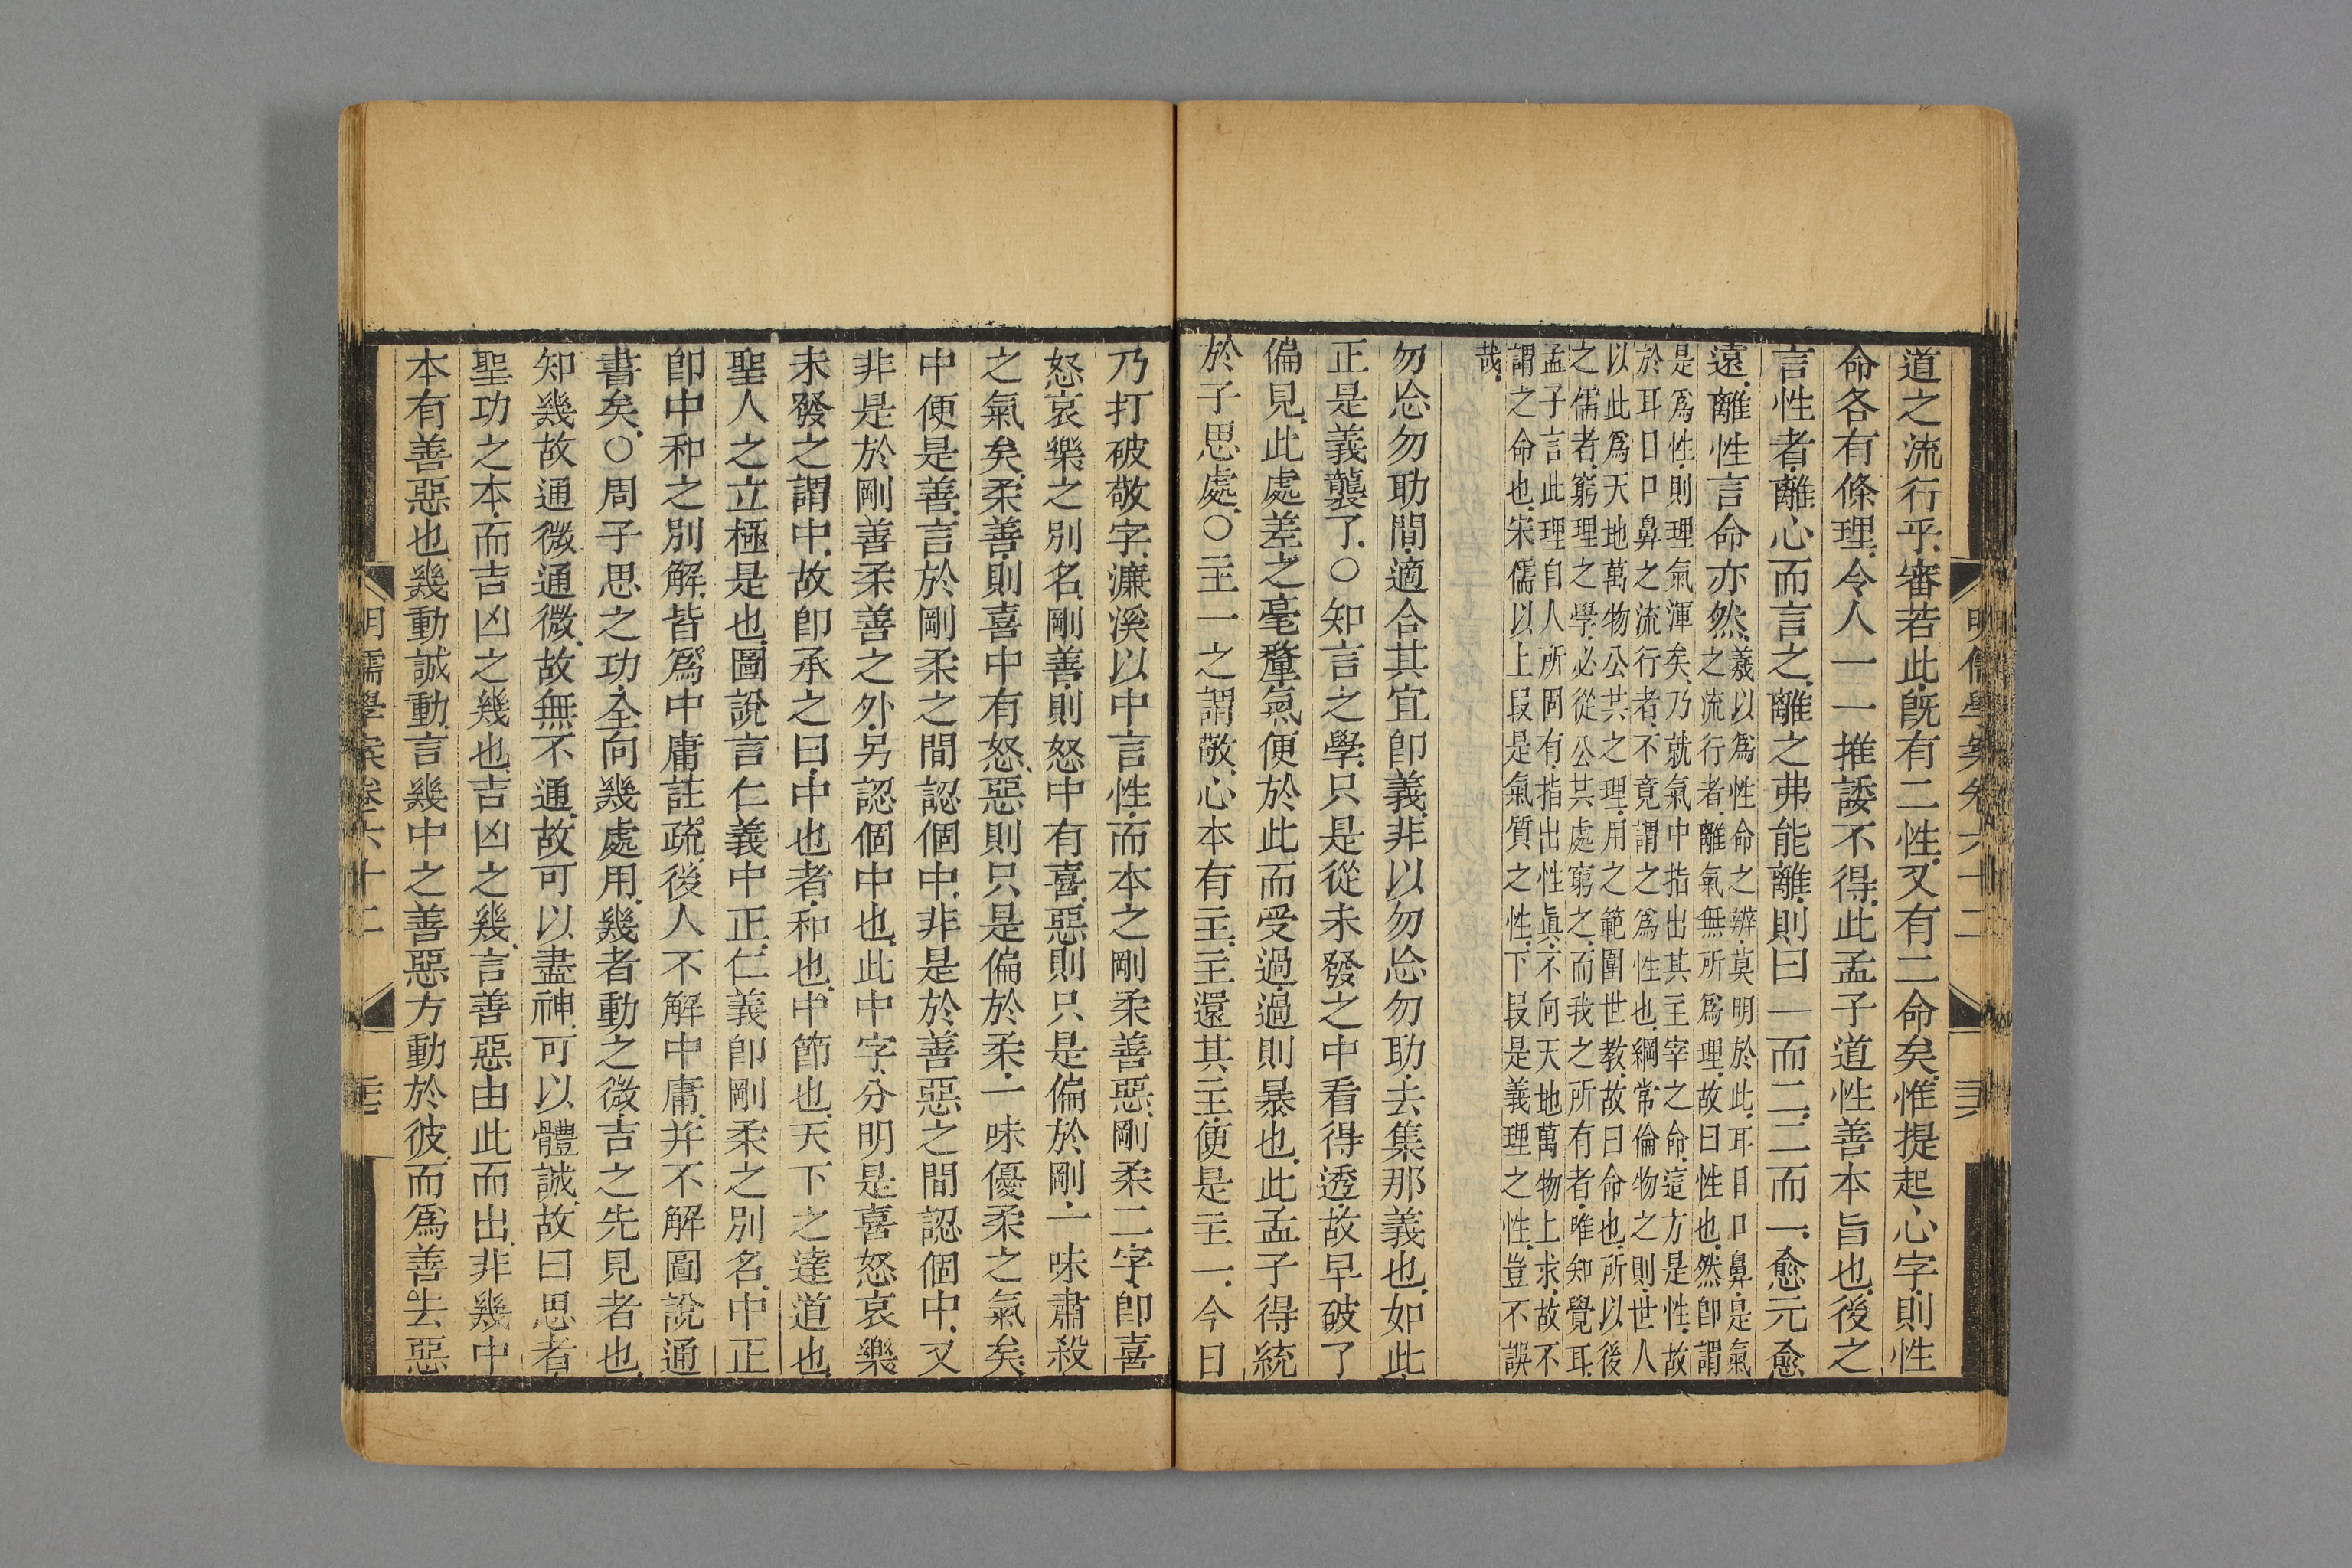 明儒學案卷六十二
道之流行乎審若此旣有二性又有二命矣惟提起心字則性
命各有條理令人一一推諉不得此孟子道性善本旨也後之
言性者離心而言之離之弗能離則曰一而二二而一愈元愈
遠離性言命亦然
羲以爲性命之辨莫明於此耳目口鼻是氣
之流行者離氣無所爲理故曰性也然卽謂
是爲性則理氣渾矣乃就氣中指出其主宰之命這方是性故
於耳目口鼻之流行者不竟謂之爲性也綱常倫物之則世人
以此爲天地萬物公共之理用之範圍世教故曰命也所以後
之儒者窮理之學必從公共處窮之而我之所有者唯知覺耳
孟子言此理自人所固有指出性眞不向天地萬物上求故不
謂之命也宋儒以上叚是氣質之性下叚是義理之性豈不誤
哉
勿忘勿助間適合其宜卽義非以勿忘勿助去集那義也如此
正是義襲了○知言之學只是從未發之中看得透故早破了
偏見此處差之毫釐氣便於此而受過過則暴也此孟子得統
於子思處○主一之謂敬心本有主主還其主便是主一今日
乃打破敬字濂溪以中言性而本之剛柔善惡剛柔二字卽喜
怒哀樂之別名剛善則怒中有喜惡則只是偏於剛一味肅殺
之氣矣柔善則喜中有怒惡則只是偏於柔一味優柔之氣矣
中便是善言於剛柔之間認個中非是於善惡之間認個中又
非是於剛善柔善之外另認個中也此中字分明是喜怒哀樂
未發之謂中故卽承之曰中也者和也中節也天下之達道也
聖人之立極是也圖說言仁義中正仁義卽剛柔之別名中正
卽中和之別解皆爲中庸註疏後人不解中庸并不解圖說通
書矣○周子思之功全向幾處用幾者動之微吉之先見者也
知幾故通微通微故無不通故可以盡神可以體誠故曰思者
聖功之本而吉凶之幾也吉凶之幾言善惡由此而出非幾中
本有善惡也幾動誠動言幾中之善惡方動於彼而爲善去惡
明儒學案卷六十二